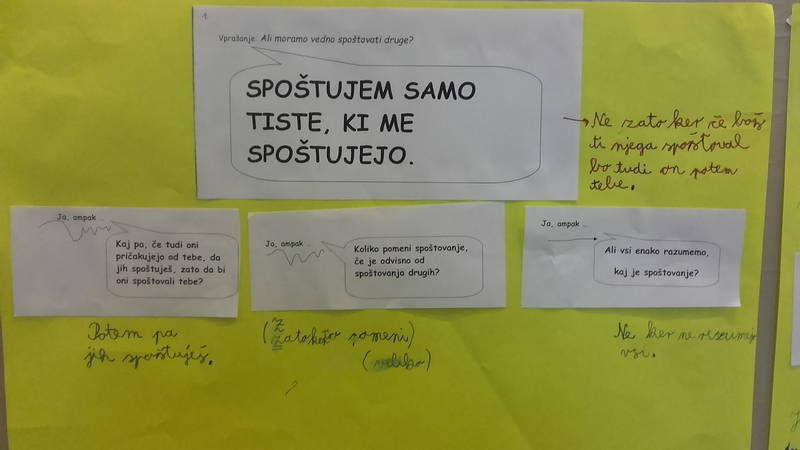 1
Vprašanje: Ali moramo vedno spoštovati druge?
SPOŠTUJEM SAMO
TISTE, KI ME
SPOŠTUJEJO.
Ne zato ker če boš
ti njega spoštoval
bo tudi on potem
tebe.
Ja, ampak ..
Kaj pa, če tudi oni
pričakujejo od tebe, da
jih spoštuješ, zato da bi
oni spoštovali tebe?
Potem pa
jih spoštuješ.
Ja, ampak ..
Koliko pomeni spoštovanje,
če je odvisno od
spoštovanja drugih?
pomeni)
(veliko)
Ja, ampak ..
Ali vsi enako razumemo,
kaj je spoštovanje?
Ne ker ne
vsi.